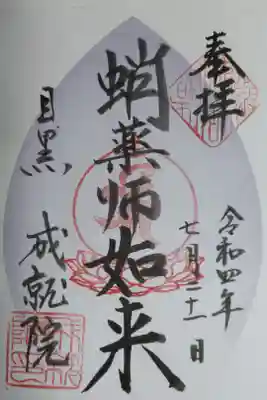 奉拝
令和四年
七月三十一日
蛸薬師如来
目黒
成就院